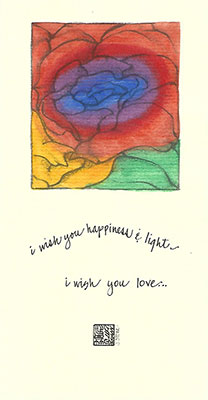 i wish you happiness & light...
i wish you love...